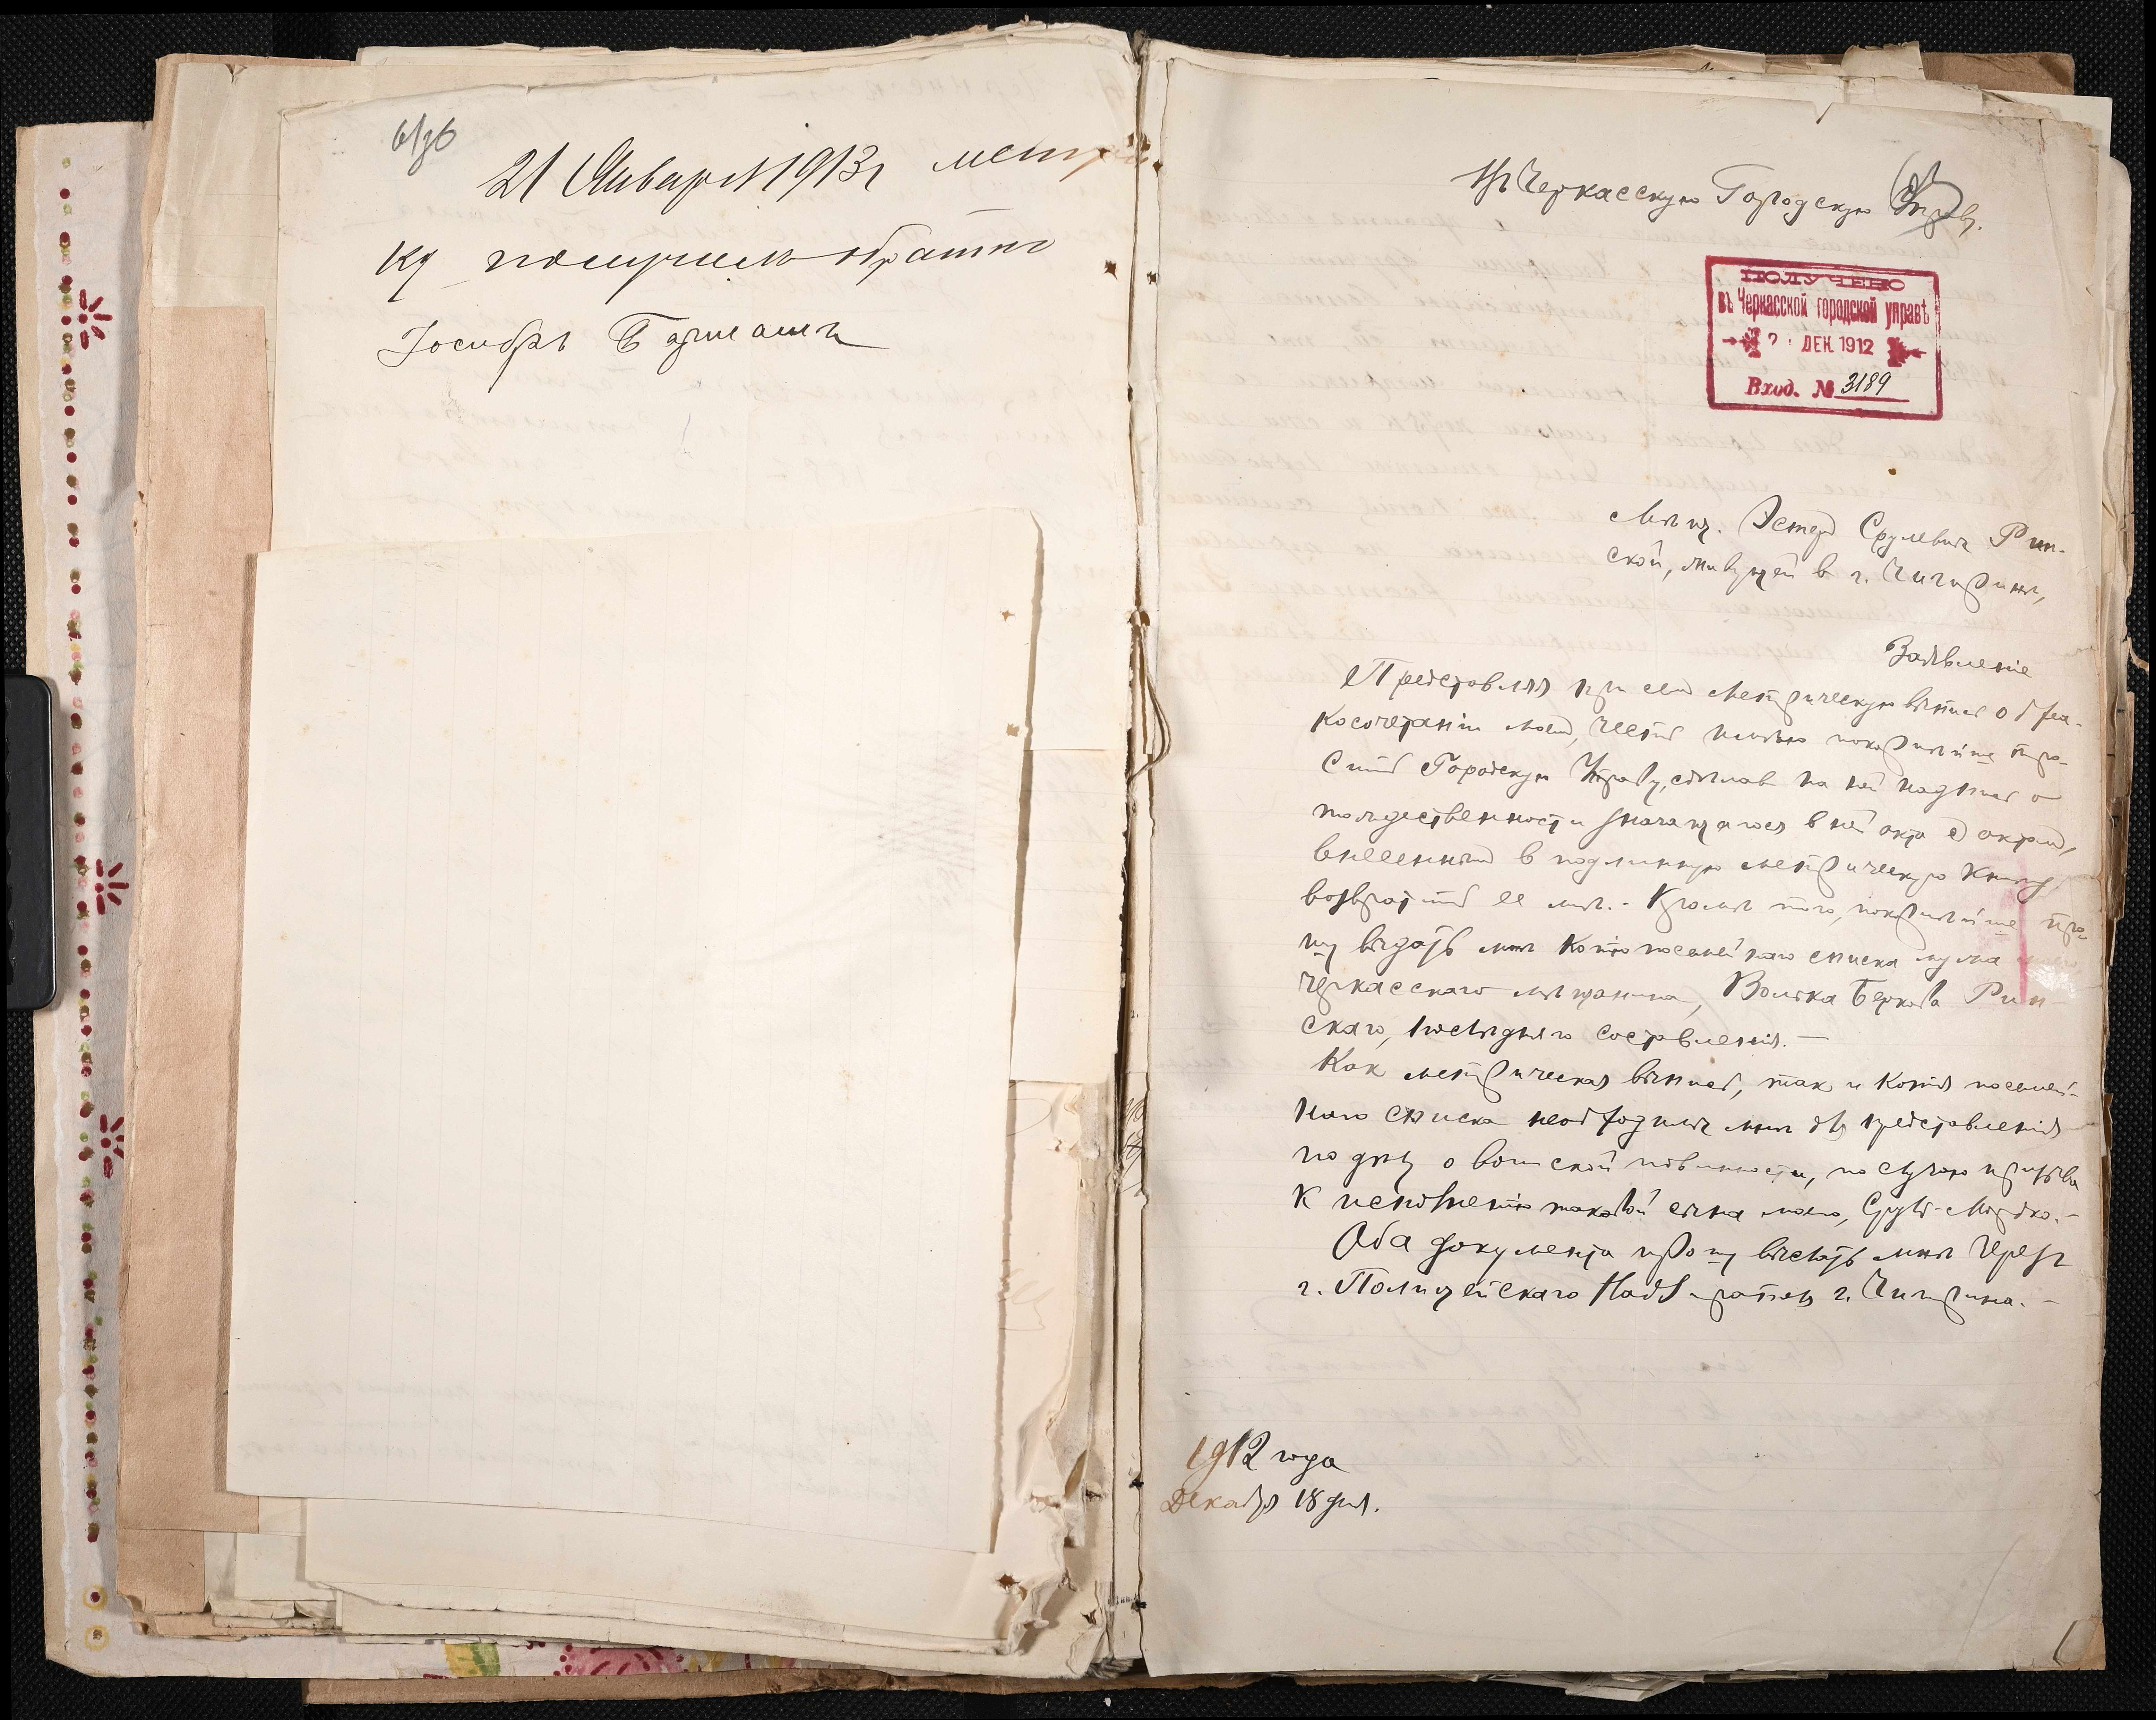 21 Января 1913 г метри
ку получил обратно
Іосифъ
Въ Черкасскую Городскую Управу.
ПОЛУЧЕНО
въ Черкасской городской управѣ
ДЕК. 1912
Вход. № 3189
Мѣщ. Эстер Срулевны Рин-
ской, живущей в г. Чигиринѣ,
Заявленіе
Представляя при сем метрическую выпись о бра-
косочетаніи моем, честь имѣю покорнѣйше про-
сить Городскую Управу, сдѣлав на ней надпись о
тождественности значащагося в ней акта с актом,
внесенным в подлинную метрическую книгу,
возвратить ее мнѣ. - Кромѣ того, покорнѣйше про-
шу выдать мнѣ копію посемейнаго списка мужа
Черкасскаго мѣщанина, Волька Беркова Рин-
скаго, послѣдняго составленія. —
Как метрическая выпись, так и копія посемей-
наго списка необходимы мнѣ для представленія
по дѣлу о воинской повинности, по случаю призыва
к исполненію таковой сына моего, Сруль-Мордко. -
Оба документа прошу выслать мнѣ через
г. Полицейскаго Надзирателя г. Чигирина. —
1912 года
Декабря 18 дня.